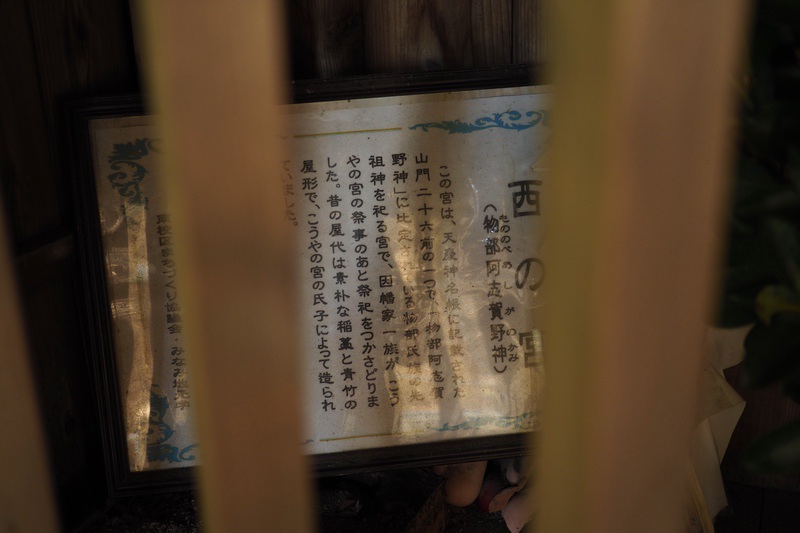 西の宮
(物部阿志賀野神)
もののべめしがのかみ
この宮は、天慶神名帳に記載された
山門二十六前の一つで、「物部阿志賀
野神」に比定されている物部氏族の先
祖神を祀る宮で、因幡家一族が、こう
やの宮の祭事のあと祭祀をつかさどりま
した。昔の屋代は素朴な稲藁と青竹の
屋形で、こうやの宮の氏子によって造られ
ていました。
校区まちづくり協議会・みなみ地元学